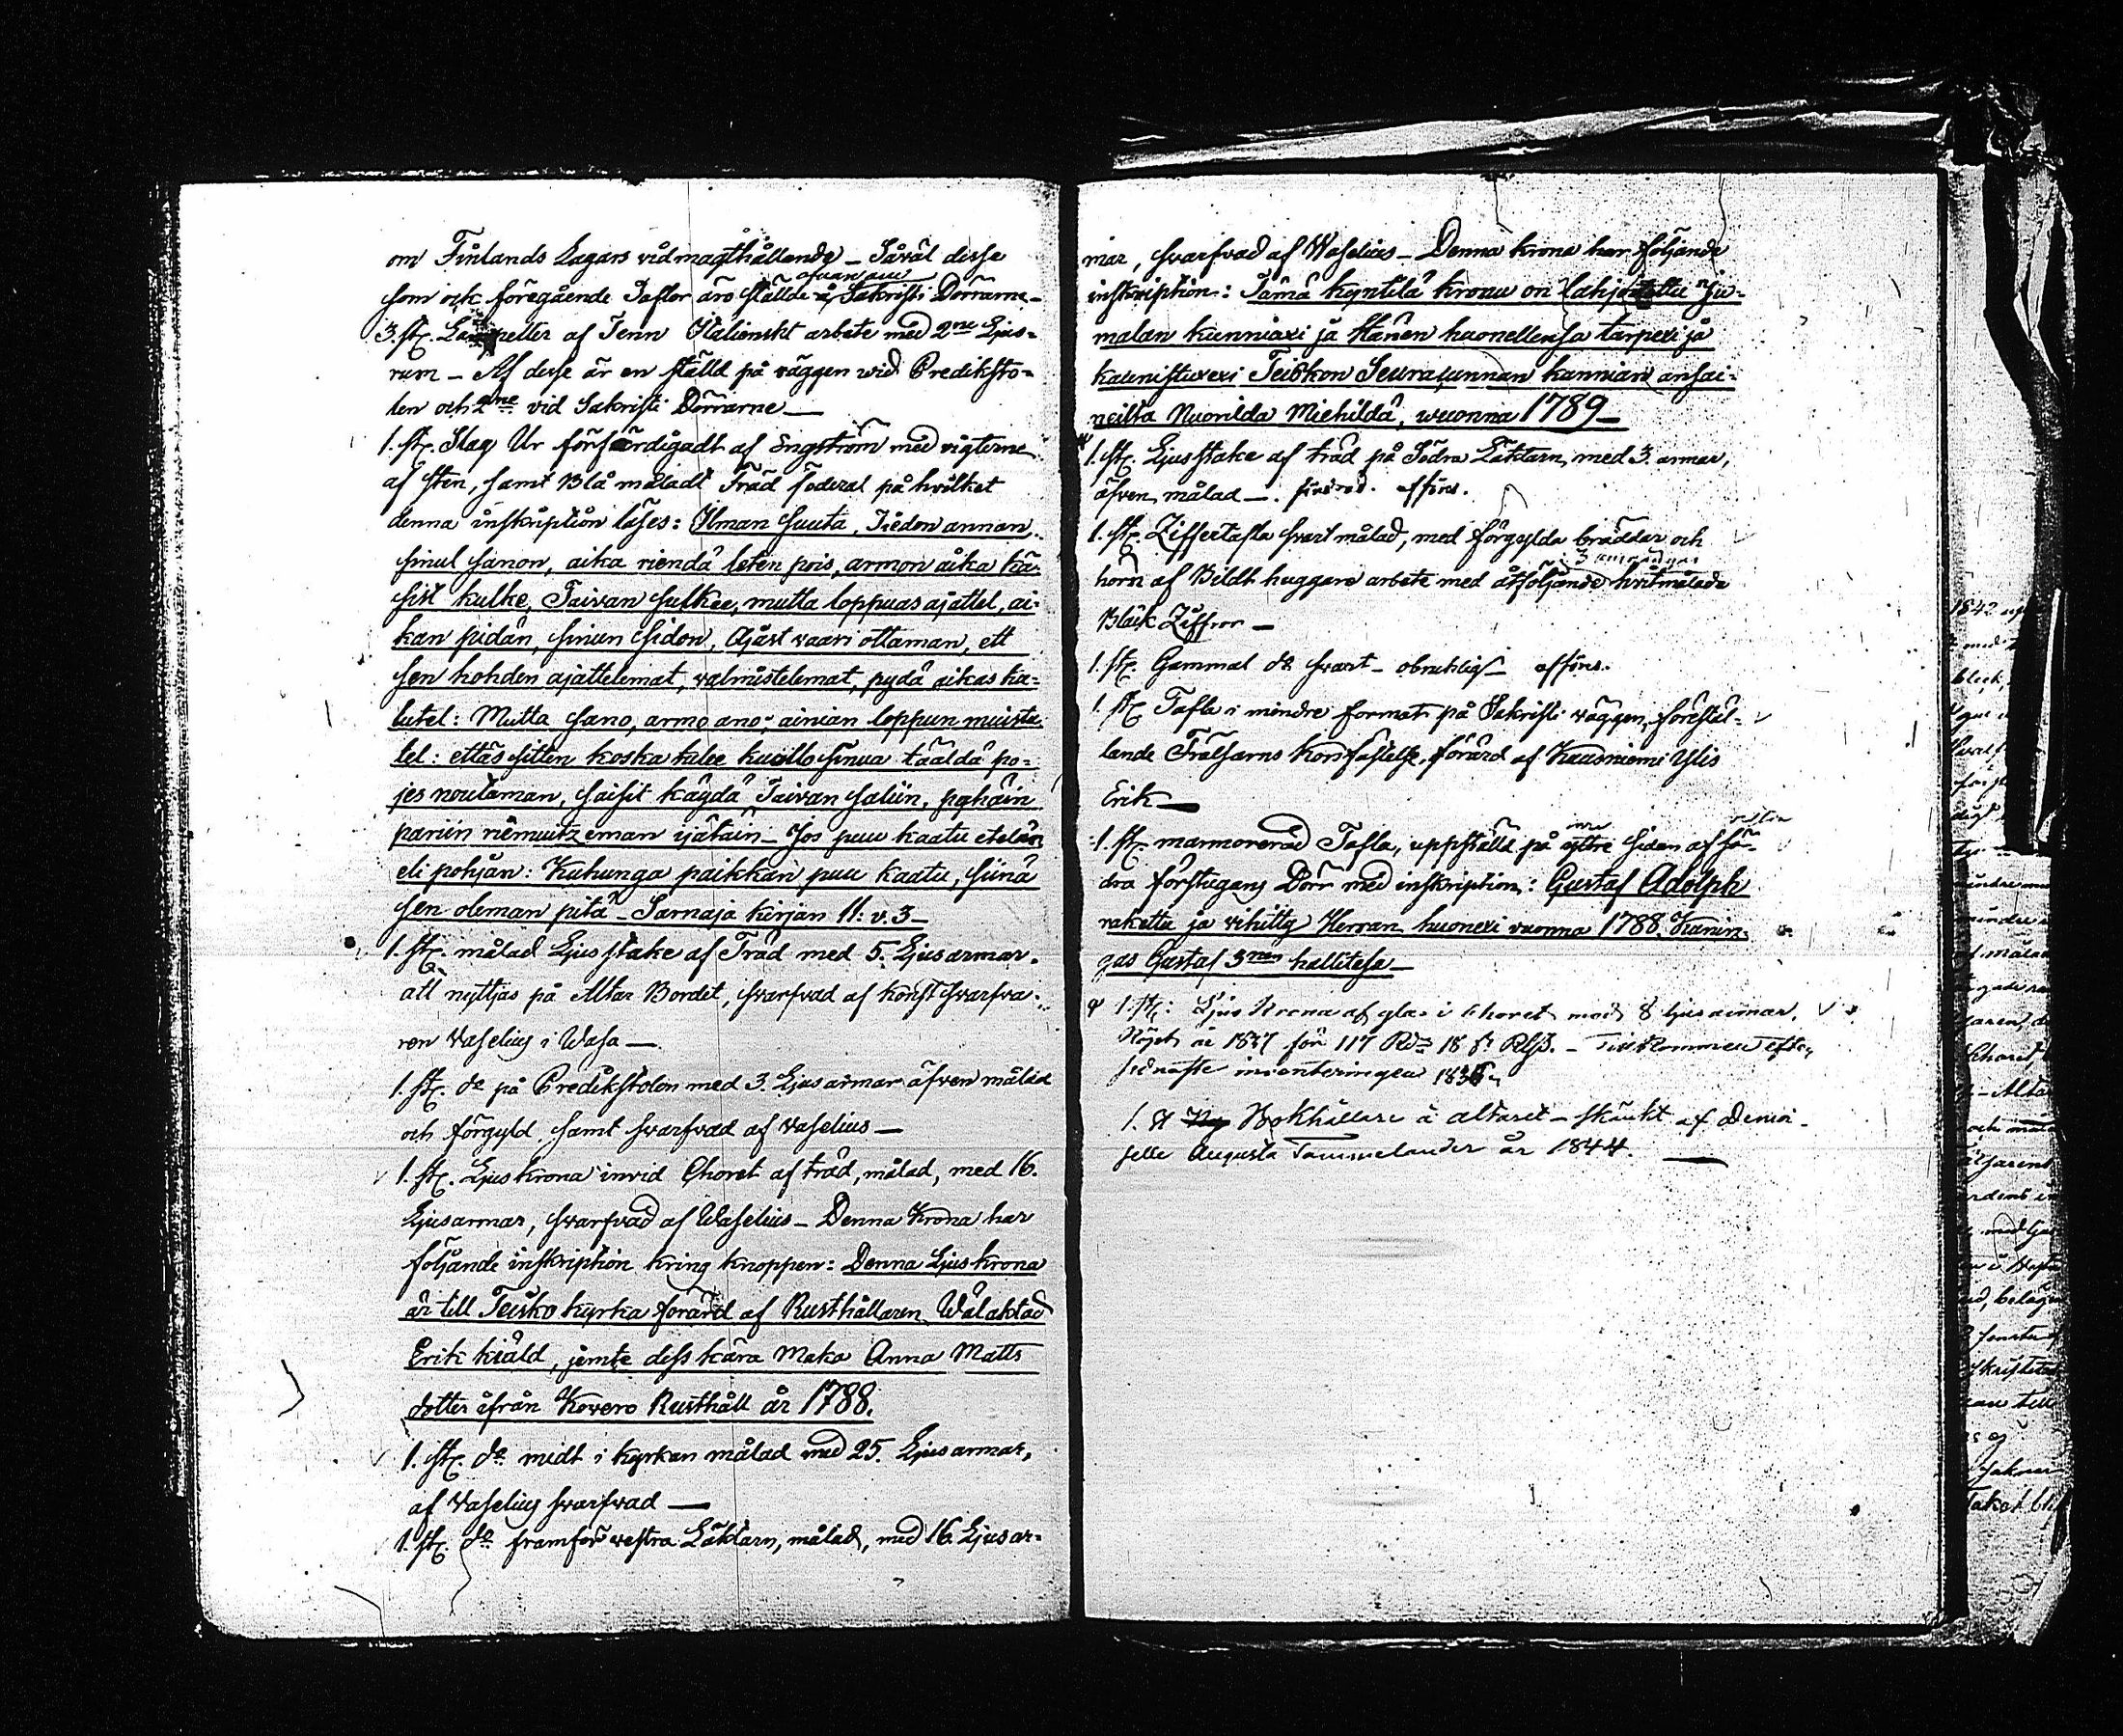 om Finlands Lagars vidmagthållande – Såväl desse
som ock föregående Taflor äro ställde å Sakristi Dörrarne –
ofvan om
3. st. Lampetter af Tenn Italienskt arbete med 2ne Ljus-
rum – Af desse är en ställd på väggen wid Prediksto-
len och 2ne vid Sakristi Dörrarne —
1. st. Slag Ur förfärdigadt af Engström med vigterne
af sten, samt Blå måladt Träd Foderal på hvilket
denna inskription läses: Ilman suuta, Tiedon annan,
sinul sanon, aika riendä leten pois, armon aika kä-
sist kulke, Taivan sulkee, mutta loppuas ajattel, ai-
kan pidän, sinun sidon, Ajast vaari ottaman, ett
sen kohden ajattelemat, valmistelemat, pydä aikas ka-
lutel: Mutta sano, armo ano; ainian loppun muiste-
tel: ettäs sitten koska tulee kuollo sinua täälda po-
jes noutaman, saisit käydä Taivan saliin, pyhäin
pariin riemuitzeman ijätäin – Jos puu kaatu etelän
eli pohjan: Kuhunga paikkan puu kaatu, siinä
sen oleman pitä – Sarnaja kirjan 11: v. 3 –
1. st. målad Ljusstake af Träd med 5. Ljusarmar.
att nyttjas på Altar Bordet, svarfvad af konstsvarfva-
ren Vaselius i Wasa —
1. st. do på Predikstolon med 3. Ljusarmar äfven målad
och förgyld, samt svarfvad af Vaselius —
1. st. Ljuskrona invid Choret af träd, målad, med 16.
Ljusarmar, svarfvad af Waselius – Denna Krona har
följande inskription kring knoppen: Denna Ljuskrona
är till Teisko kyrka förärd af Rusthållaren Wälaktad
Erik kiäld, jemte dess kära Maka Anna Matts
dotter ifrån Kovero Rusthåll år 1788.
1. st. do midt i kyrkan målad med 25. Ljusarmar,
af Vaselius svarfvad —
1. st. do framför vestra Läktarn, målad, med 16. Ljusar-
mar, svarfvad af Waselius – Denna krona har följande
inskription: Tämä kyntelä kronu on lahjoitettu Ju-
malan kunniaxi ja Hänen huonellensa tarpexi ja
kaunistuxexi Teiskon Seuracunnan kunnian ansai-
neilta Nuorilda Miehildä, wuonna 1789 –
1. st. Ljusstake af träd på Södra Läktarn, med 3. armar,
äfven målad —. effins.
1. st. Ziffertafla svart målad, med förgylda bräddar och
3 omgångar
horn af Bildthuggare arbete med åtföljande hvitmålade
Bläck Ziffror —
1. st. Gammal do svart – obruklig – effins.
1. st. Tafla i mindre format på Sakristi väggen, förestäl-
lande Frälsarns Korsfästelse, förärd af Kaasniemi Ylis
Erik —
1. st. marmorerad Tafla, uppställd på yttre sidan af sö-
inre
dra förstugans Dörr med inskription: Gustaf Adolph
rakettu ja vihitty Herran huonexi vuonna 1788. Kunin-
gas Gustaf 3nen hallitesa —
1. st: Ljus Krona af glas i Choret med 8 ljusarmar,
köpt år 1837 för 117 Rd 18 s. Rgs. – Tillkommen efter
sednaste inventeringen 1836.
1. st Bokhållare å altaret – skänkt af Demoi-
selle Augusta Tammelander år 1844. —